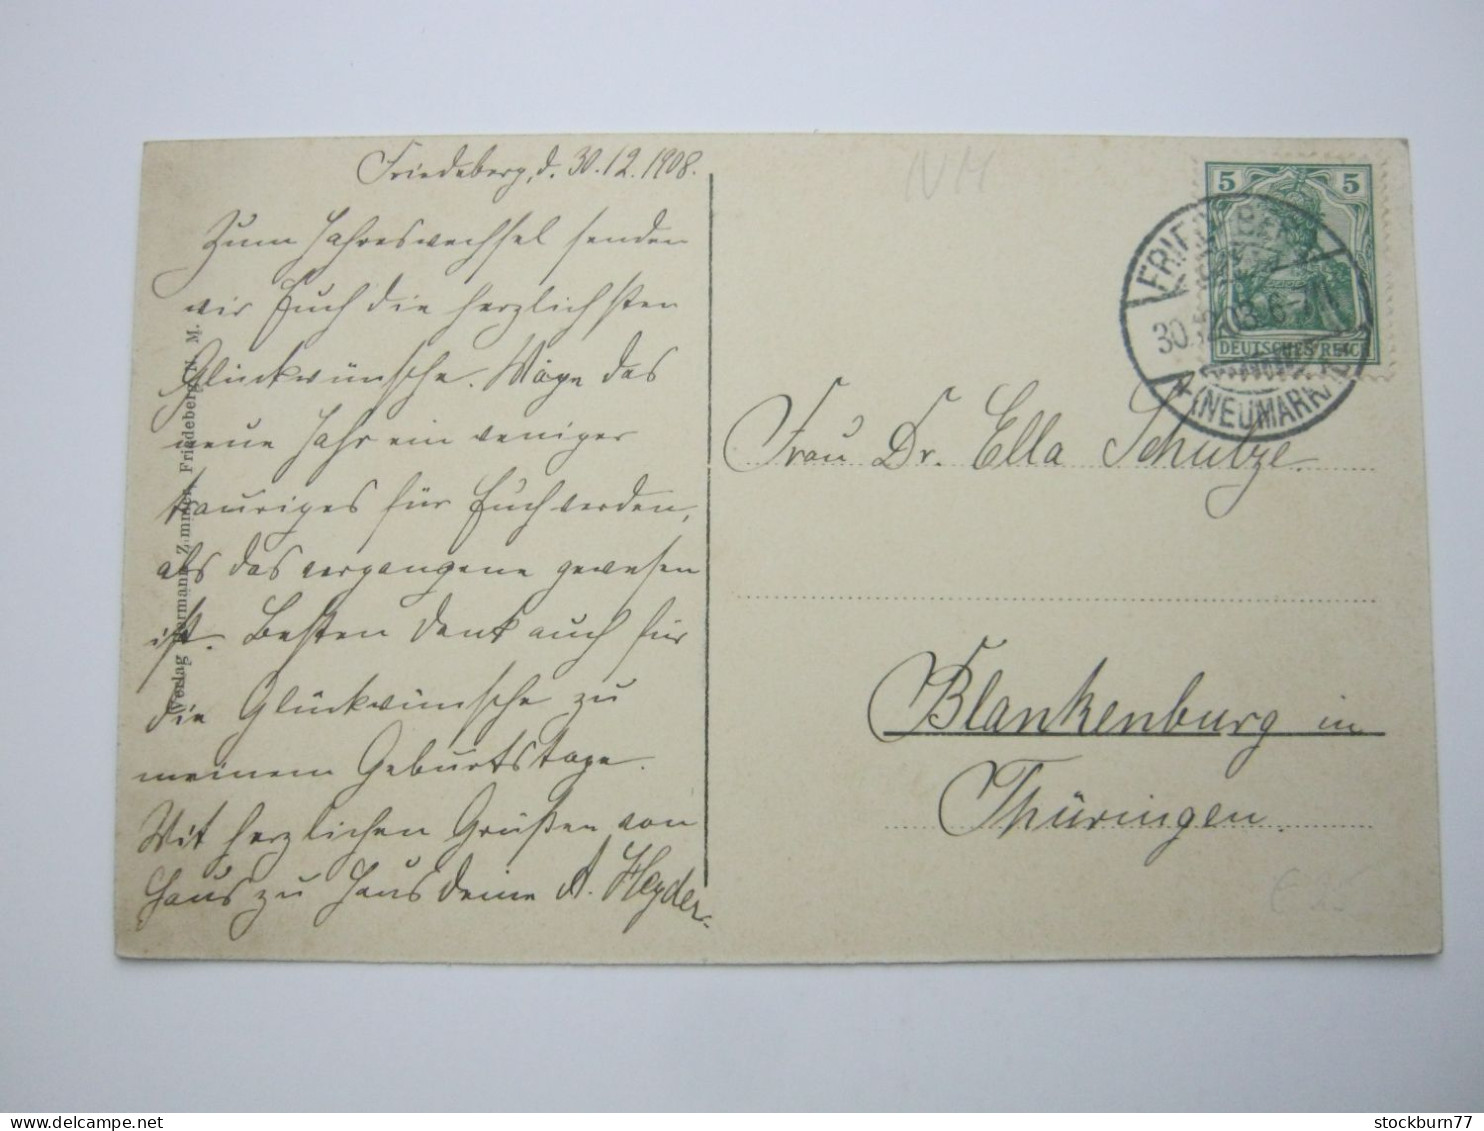 Friedeberg, d. 30.12.1908.
Zum Jahreswechsel senden
wir Euch die herzlichsten
Glückwünsche. Möge das
neue Jahr ein weniger
trauriges für Euch werden,
als das vergangene gewesen
ist. Besten Dank auch für
die Glückwünsche zu
meinem Geburtstage.
Mit herzlichen Grüßen von
Haus zu Haus deine A. Heyder.
Verlag Hermann Friedeberg N. M.
NM
5 5
DEUTSCHES REICH
(NEUMARK)
Frau Dr. Ella Schulze.
Blankenburg in
Thüringen.
stockburn77